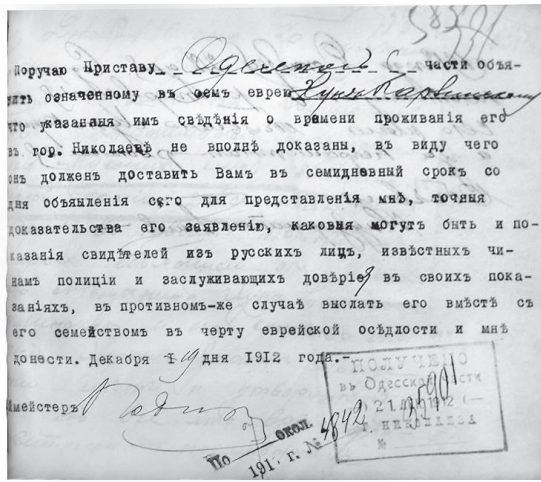 Поручаю Приставу Одесской части объя-
вить означенному въ семъ еврею
что указанныя имъ свѣдѣнія о времени проживанія его
въ гор. Николаевѣ не вполнѣ доказаны, въ виду чего
онъ долженъ доставить Вамъ въ семидневный срокъ со
дня объявленія сего для представленія мнѣ, точныя
доказательства его заявленію, каковыя могутъ быть и по-
казанія свидѣтелей изъ русскихъ лицъ, извѣстныхъ чи-
намъ полиціи и заслуживающихъ довѣрія въ своихъ пока-
заніяхъ, въ противномъ-же случаѣ выслать его вмѣстѣ съ
его семействомъ въ черту еврейской осѣдлости и мнѣ
донести. Декабря 19 дня 1912 года.-
ПОЛУЧЕНО
въ Одесской части
21 1912
г. НИКОЛАЕВА
№
мейстеръ
По окол.
191 г. № 4842